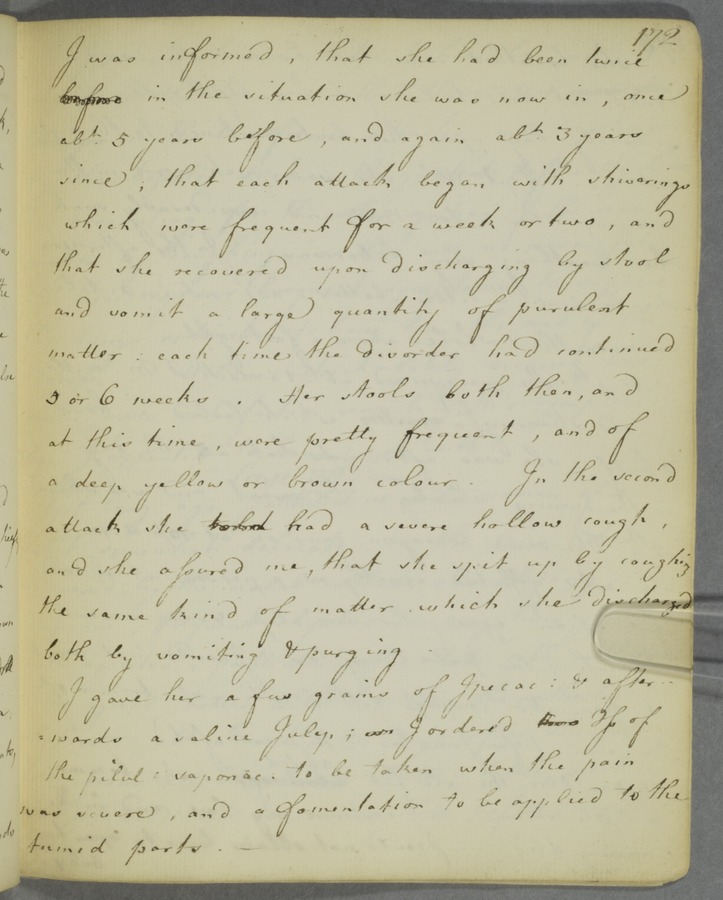 172
I was informed, that she had been twice
before in the situation she was now in, once
abt. 5 years before, and again abt. 3 years
since; that each attack began with shiverings
which were frequent for a week or two, and
that she recovered upon discharging by stool
and vomit a large quantity of purulent
matter: each time the disorder had continued
5 or 6 weeks. Her stools both then, and
at this time, were pretty frequent, and of
a deep yellow or brown colour. In the second
attack she had a severe hollow cough,
and she assured me, that she spit up by coughing
the same kind of matter which she discharged
both by vomiting & purging.
I gave her a few grains of Ipecac: & after-
=wards a saline Julep; I ordered of
the pilul: saponac: to be taken when the pain
was severe, and a fomentation to be applied to the
tumid parts. —